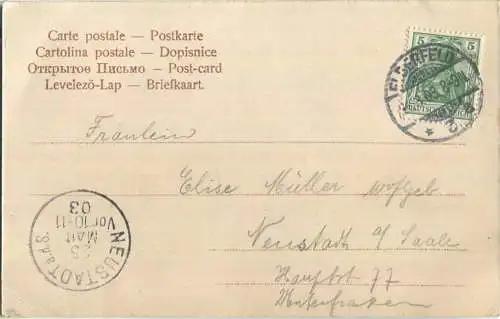 Carte postale — Postkarte
Cartolina postale — Dopisnice
Открытое Письмо — Post-card
Levelező-Lap — Briefkaart.
5 5
ELBERFELD
Fräulein
Elise Müller
Neustadt a/ Saale
Hauptstr 77
Unterfranken
NEUSTADT a.d.S.
25
MAI
Vor 10-11
03